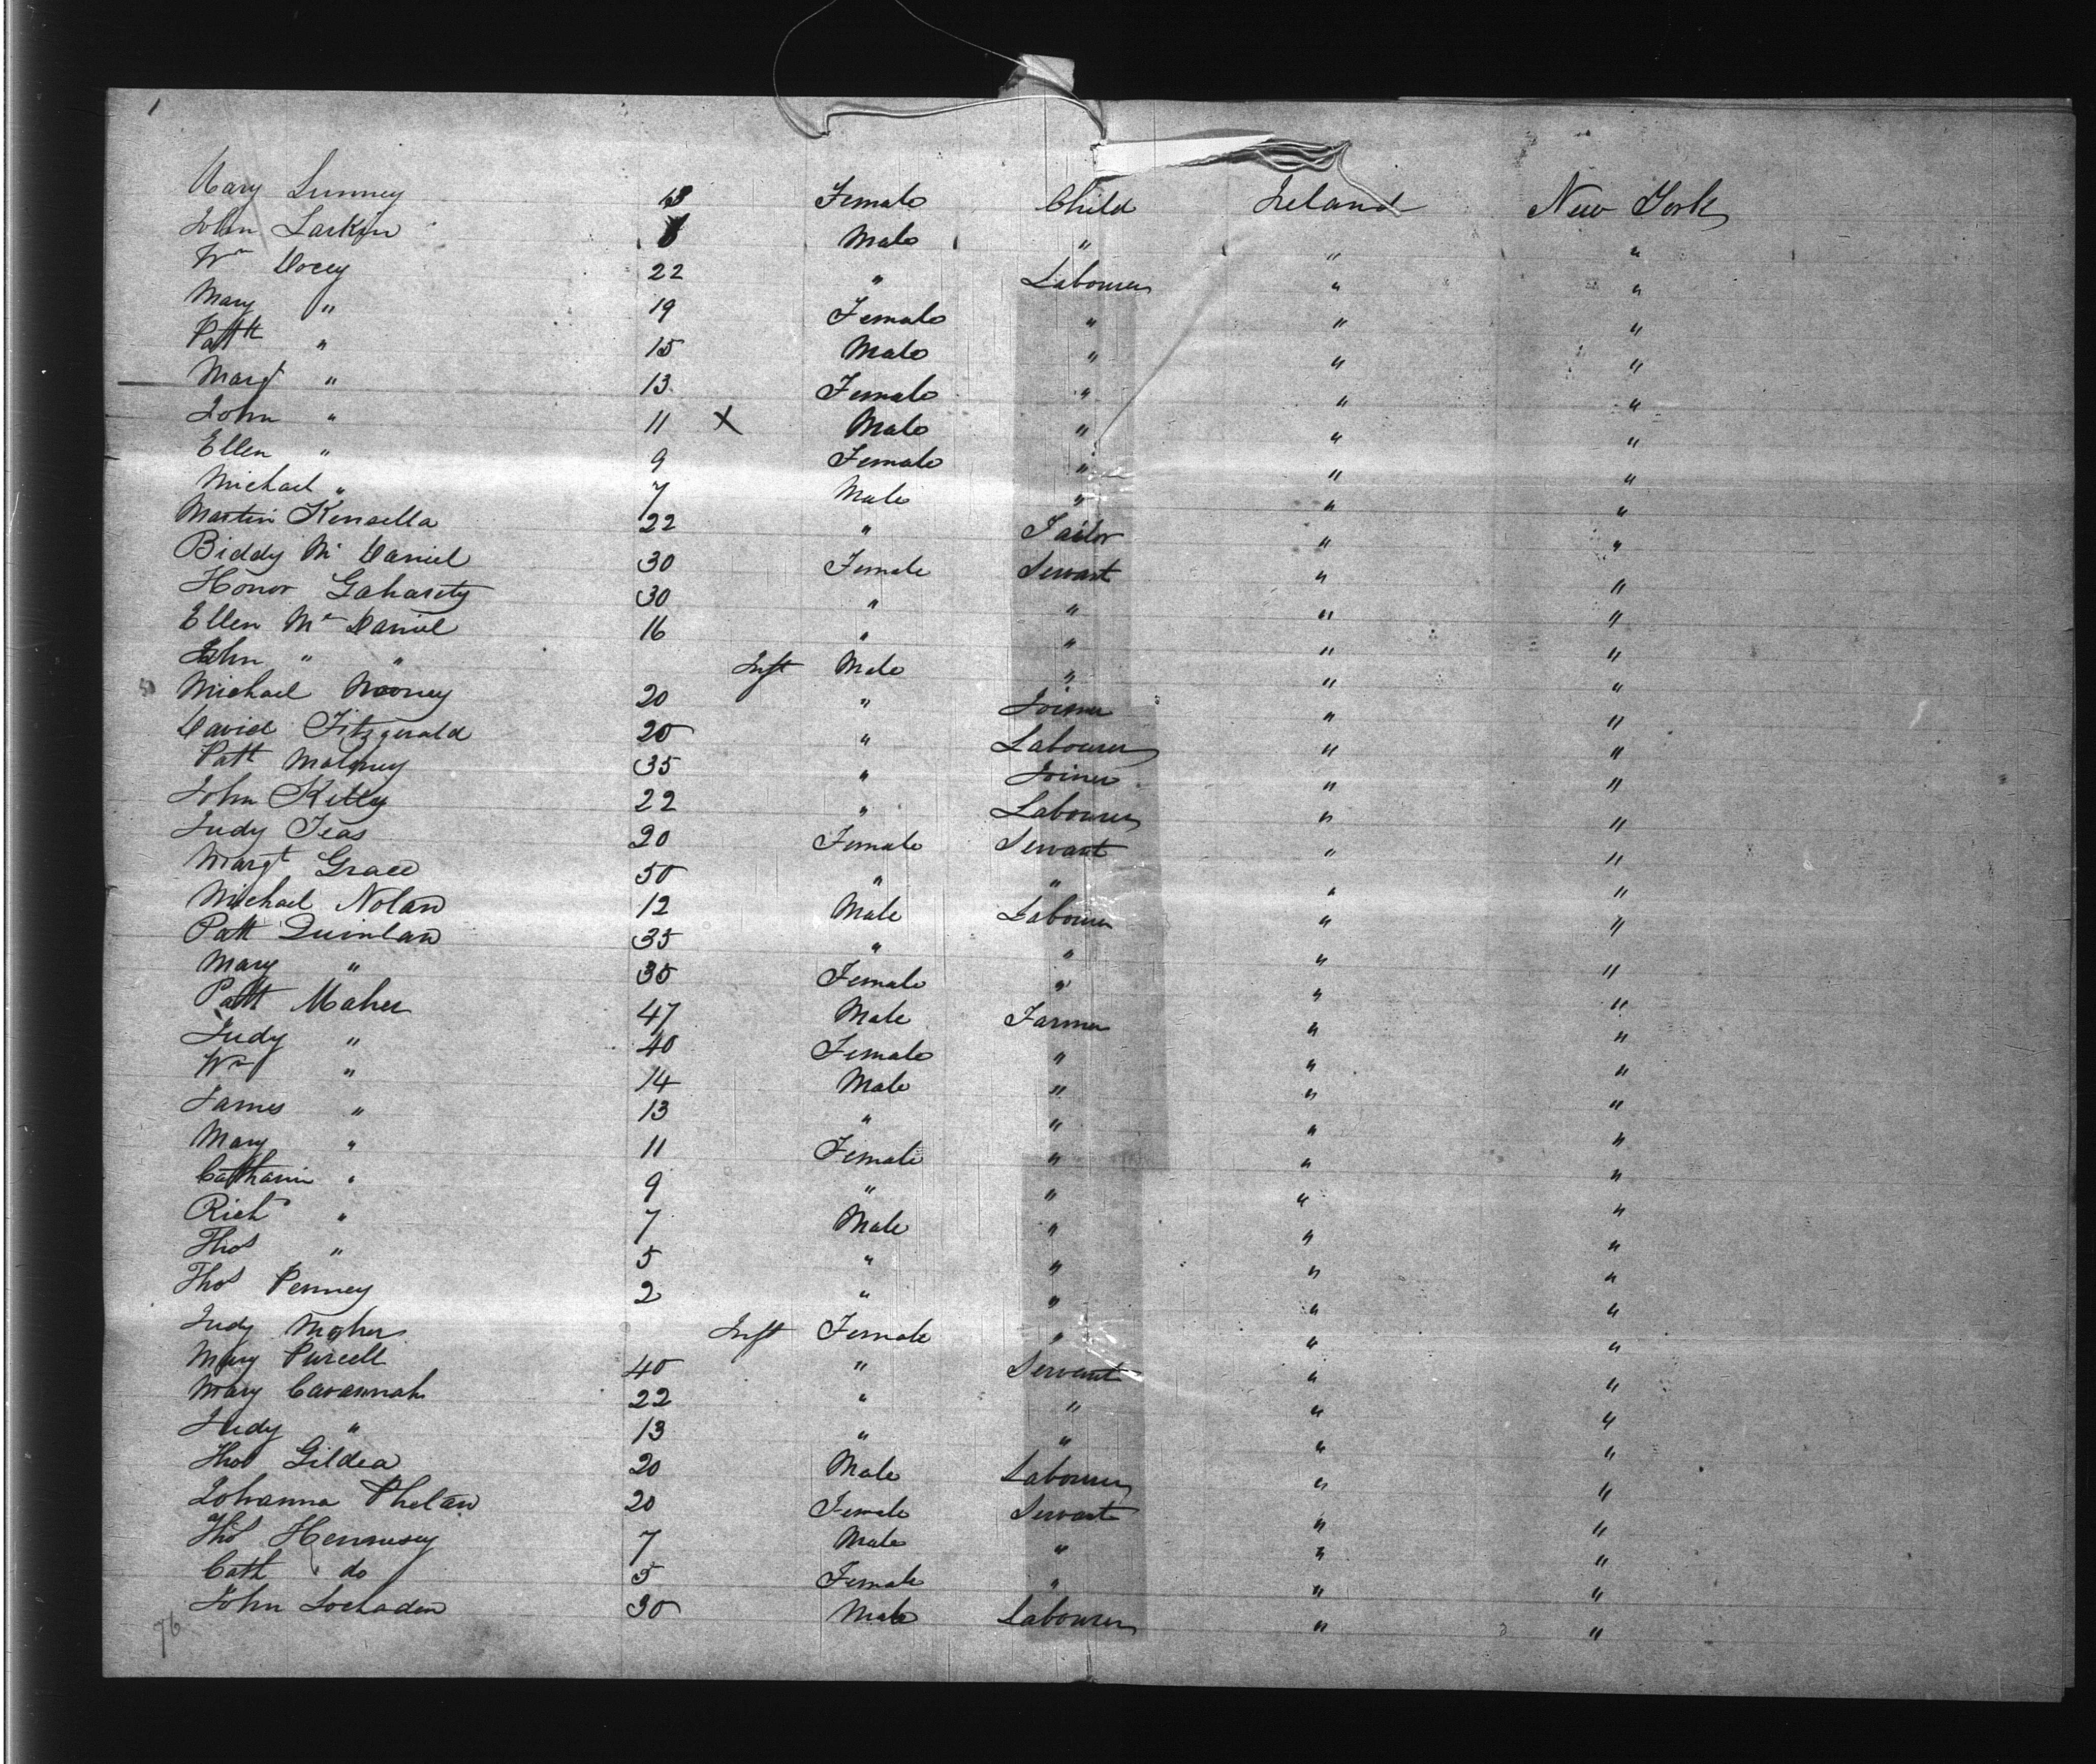 1
Mary Lunney 13 Female Child Ireland New York
John Larkin Male " " "
Wm Docey 22 " Labourer " "
Mary " 19 Female " " "
Patk " 15 Male " " "
Margt " 13 Female " " "
John " 11 X Male " " "
Ellen " 9 Female " " "
Michael " 7 Male " " "
Martin Kensella 22 " Tailor " "
Biddy Mc Daniel 30 Female Servant " "
Honor Gaharity 30 " " " "
Ellen Mc Daniel 16 " " " "
John " " Inft Male " " "
Michael Mooney 20 " Joiner " "
David Fitzgerald 20 " Labourer " "
Patt Maloney 35 " Joiner " "
John Kelly 22 " Labourer " "
Judy Teas 20 Female Servant " "
Margt Grace 50 " " " "
Michael Nolan 12 Male Labourer " "
Patt Quinlan 35 " " " "
Mary " 35 Female " " "
Patt Maher 47 Male Farmer " "
Judy " 40 Female " " "
Wm " 14 Male " " "
James " 13 " " " "
Mary " 11 Female " " "
Catharin " 9 " " " "
Richd " 7 Male " " "
Thos " 5 " " " "
Thos Penney 2 " " " "
Judy Maher Inft Female " " "
Mary Purcell 40 " Servant " "
Mary Cavannah 22 " " " "
Judy " 13 " " " "
Thos Gildea 20 Male Labourer " "
Johanna Phelan 20 Female Servant " "
Thos Hennesey 7 Male " " "
Cath do 5 Female " " "
John Lochaden 30 Male Labourer " "
76